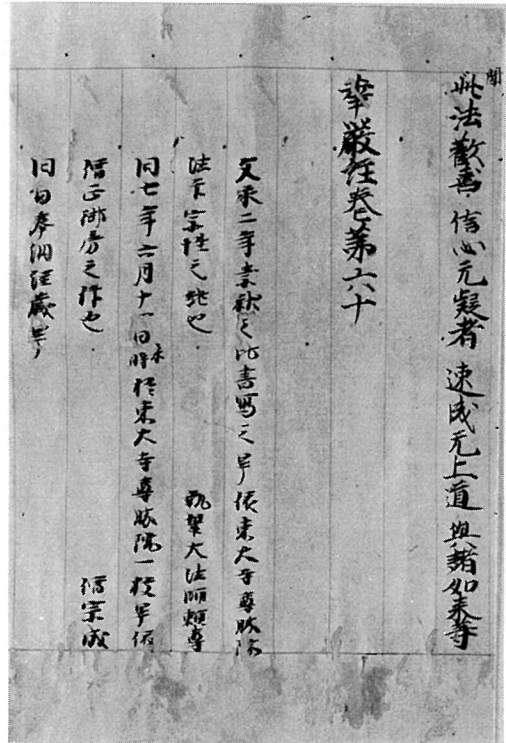 聞
此法歡喜 信心无疑者 速成无上道 與諸如来等
華嚴経巻第六十
文永二年素秋之比書写之畢 依東大寺尊勝院
法下宗性之誂也 執筆大法師頼尊
同七年六月十一日時未於東大寺尊勝院一校畢 依
僧正御房之仰也 僧宗成
同日奉納経蔵畢